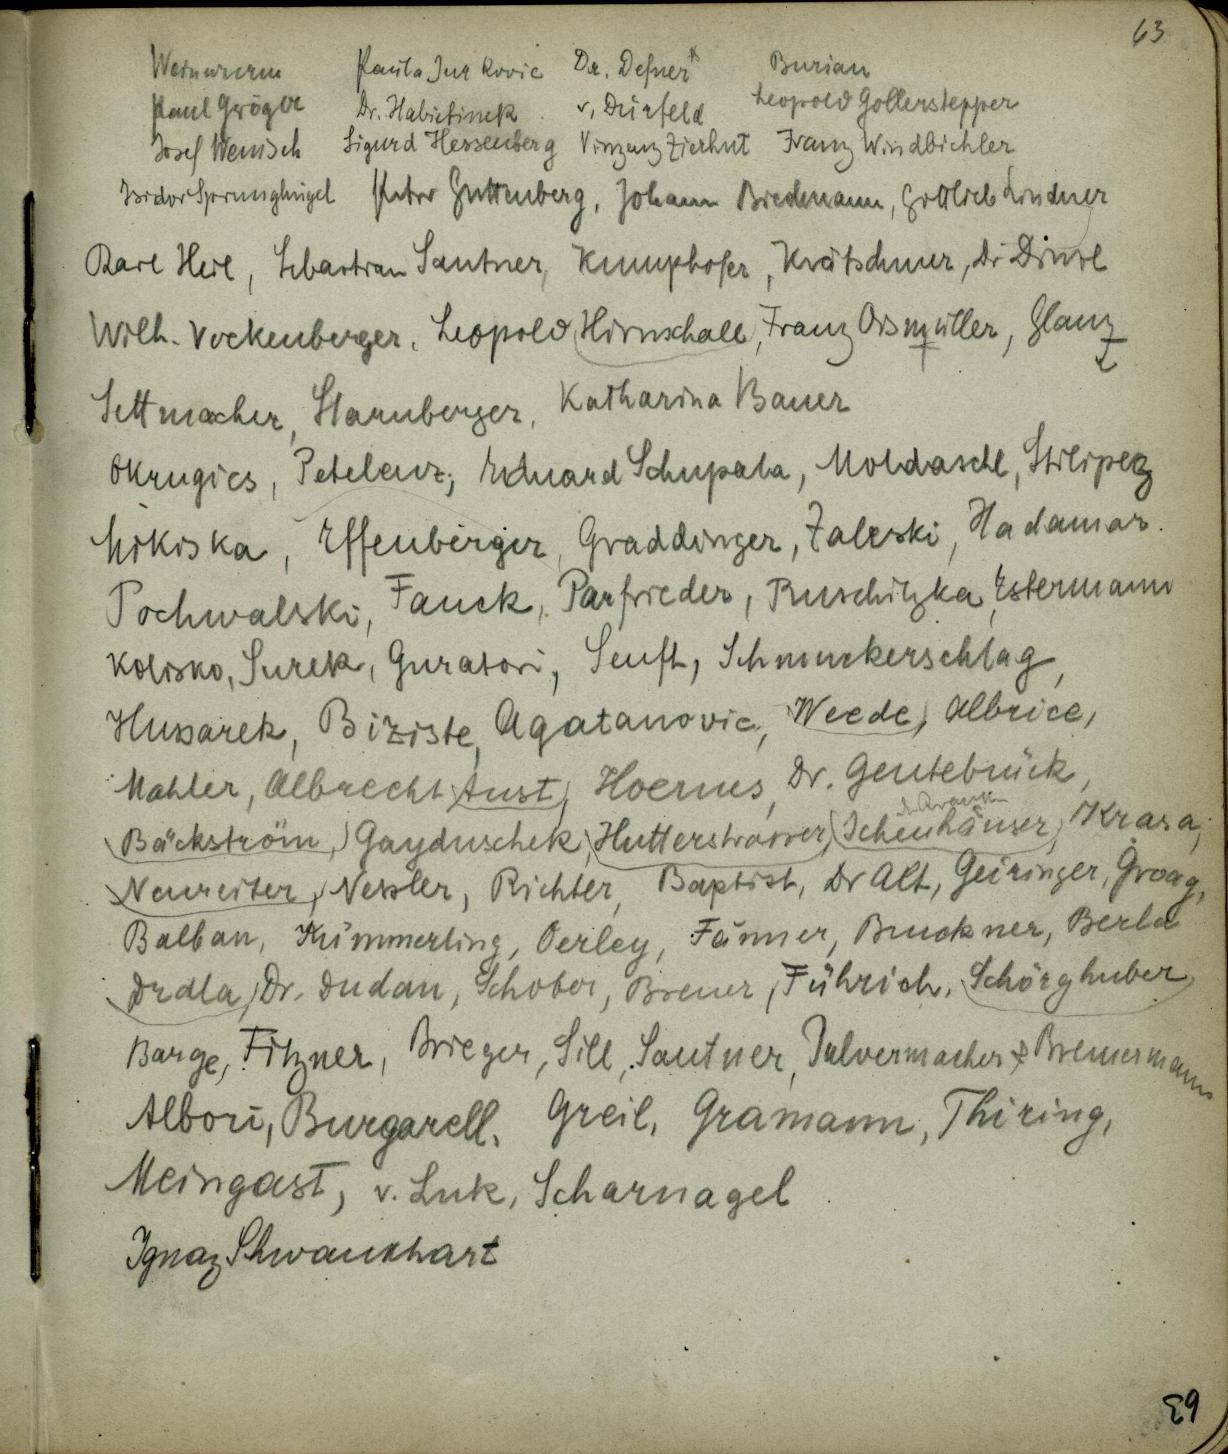 63
Weinwurm Paula Jurkovic Dr. Defner Burian
Paul Gröger Dr. Habietinek v. Dürfeld Leopold Gollerstepper
Josef Wenisch Sigurd Hessenberg Vinzenz Zierhut Franz Windbichler
Isidor Sprunghügel Peter Guttenberg, Johann Biedmann, Gottlieb Lindner
Karl Heil, Sebastian Santner, Kumphofer, Krätschmer, Dr Dinzl
Wilh. Vockenberger, Leopold Hirnschall, Franz Ossmüller, Glanz
Settmacher, Starnberger, Katharina Bauer
Okrugics, Petelenz, Eduard Schupala, Moldaschl, Stilipetz
Mikiska, Effenberger, Graddinger, Zaleski, Hadamar.
Pochwalski, Fauck, Parfrieder, Ruschitzka, Estermann
Kolisko, Surek, Guratori, Senft, Schmuckerschlag,
Hussarek, Biziste, Agatanovic, Weede, Albrice,
Mahler, Albrecht, Aust, Hoernes, Dr. Gentebrück,
Bäckström, Gayduschek, Hutterstrasser, Scheuhäuser, Krasa,
Neureiter, Nessler, Richter, Baptist, Dr Alt, Geiringer, Groag,
Balban, Kümmerling, Oerley, Fänner, Bruckner, Berla
Drdla, Dr. Dudan, Schober, Breuer, Führich, Schörghuber
Barge, Fitzner, Brieger, Sill, Santner, Pulvermacher, Bremermann
Albori, Burgarell, Greil, Gramann, Thiring,
Meingast, v. Luk, Scharnagel
Ignaz Schwankhart
63